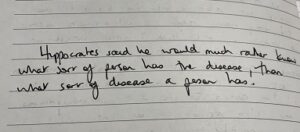 Hyppocrates said he would much rather know
what sort of person has the disease, than
what sort of disease a person has.